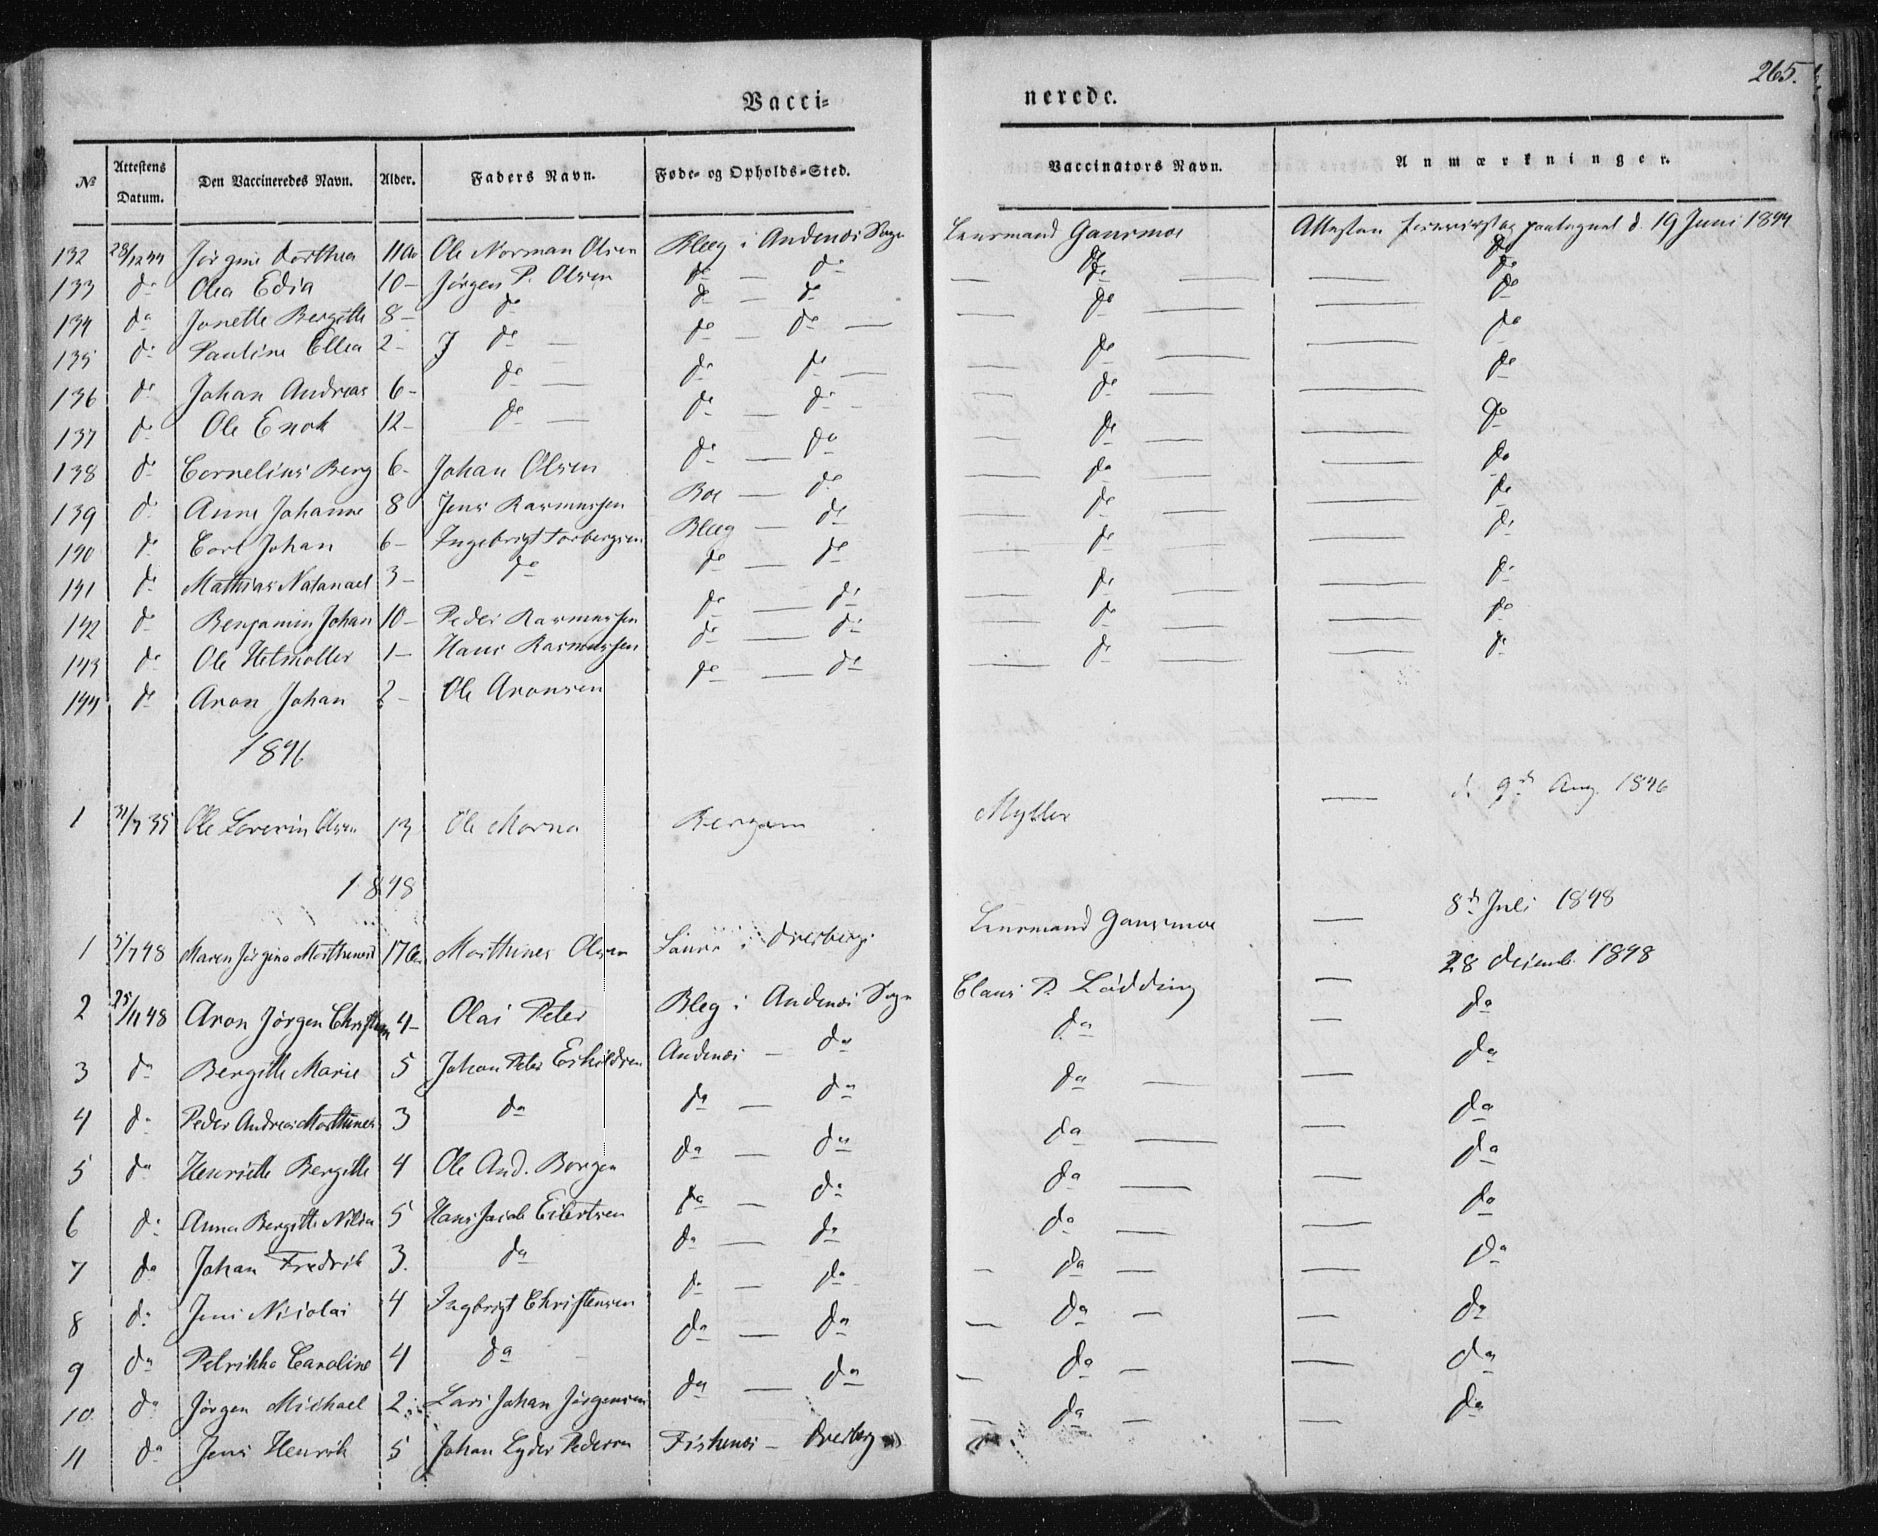 265.
Vacci= nerede.
№ Attestens Datum. Den Vaccineredes Navn. Alder. Faders Navn. Føde- og Opholds-Sted. Vaccinators Navn. Anmærkninger.
132 28/12 44 Jørgine Dorthea 11 Aar Ole Norman Olsen Bleg i Andenæs Sogn Lensmand Gaarsmoe Attesten paategnet d. 19 Juni 1844
133 do Olea Edia 10 – Jørgen P. Olsen do — do — do — — do
134 do Jonette Bergitte 8 – do do — do — do — — do
135 do Pauline Ellea 2 – J do — do — do — — do — — do
136 do Johan Andreas 6 – do — do do — — do — — do
137 do Ole Enok 12 – do — do — do – — do — — do
138 do Cornelius Berg 6 – Johan Olsen do — do — do — — do
139 do Anne Johanne 8 Jens Rasmussen Boe — do — do — — do
140 do Carl Johan 6 – Ingebrigt Torbergsen Bleg — do — do — — do
141 do Mathias Natanael 3 – do do — do — do — — do
142 do Benjamin Johan 10 – Peder Rasmussen do — do — do — — do
143 do Ole Hetmøller 1 – Hans Rasmussen do — do — do — — do
144 do Aron Johan 2 – Ole Aronsen do — do — do — — do
1846
1 31/7 35 Ole Severin Olsen 13 Ole Morna Bergen Mylter — d. 9de Aug. 1846
1848
1 5/7 48 Maren Jørgine Morthensd 17 Aar Morthines Olsen i Dverberg Lensmand Gaarsmoe — 8de Juli 1848
2 25/11 48 Aron Jørgen Christian 4 – Olai Peter Bleg i Andenæs Sogn Claus P. Lødding — 28 Decemb. 1848
3 do Bergitte Marie 5 Johan Peter Eskildsen Andenæs — do do — do
4 do Peder Andreas Morthines 3 do do — do do — — do
5 do Henriette Bergitte 4 Ole And. Borgen do — do do — — do
6 do Anna Bergitte Nilda 5 Hans Jacob Eilertsen do — do do — — do
7 do Johan Fredrik 3. do do — do do — — do
8 do Jens Nicolai 4 Ingbrigt Christensen do — do — do — do
9 do Petrikka Caroline 4 do do — do — do — — do
10 do Jørgen Michael 2 Lars Johan Jørgensen do — do — do — — do
11 do Jens Henrik 5 Johan Lyder Pedersen Fiskenæs – Dverberg — do — — do